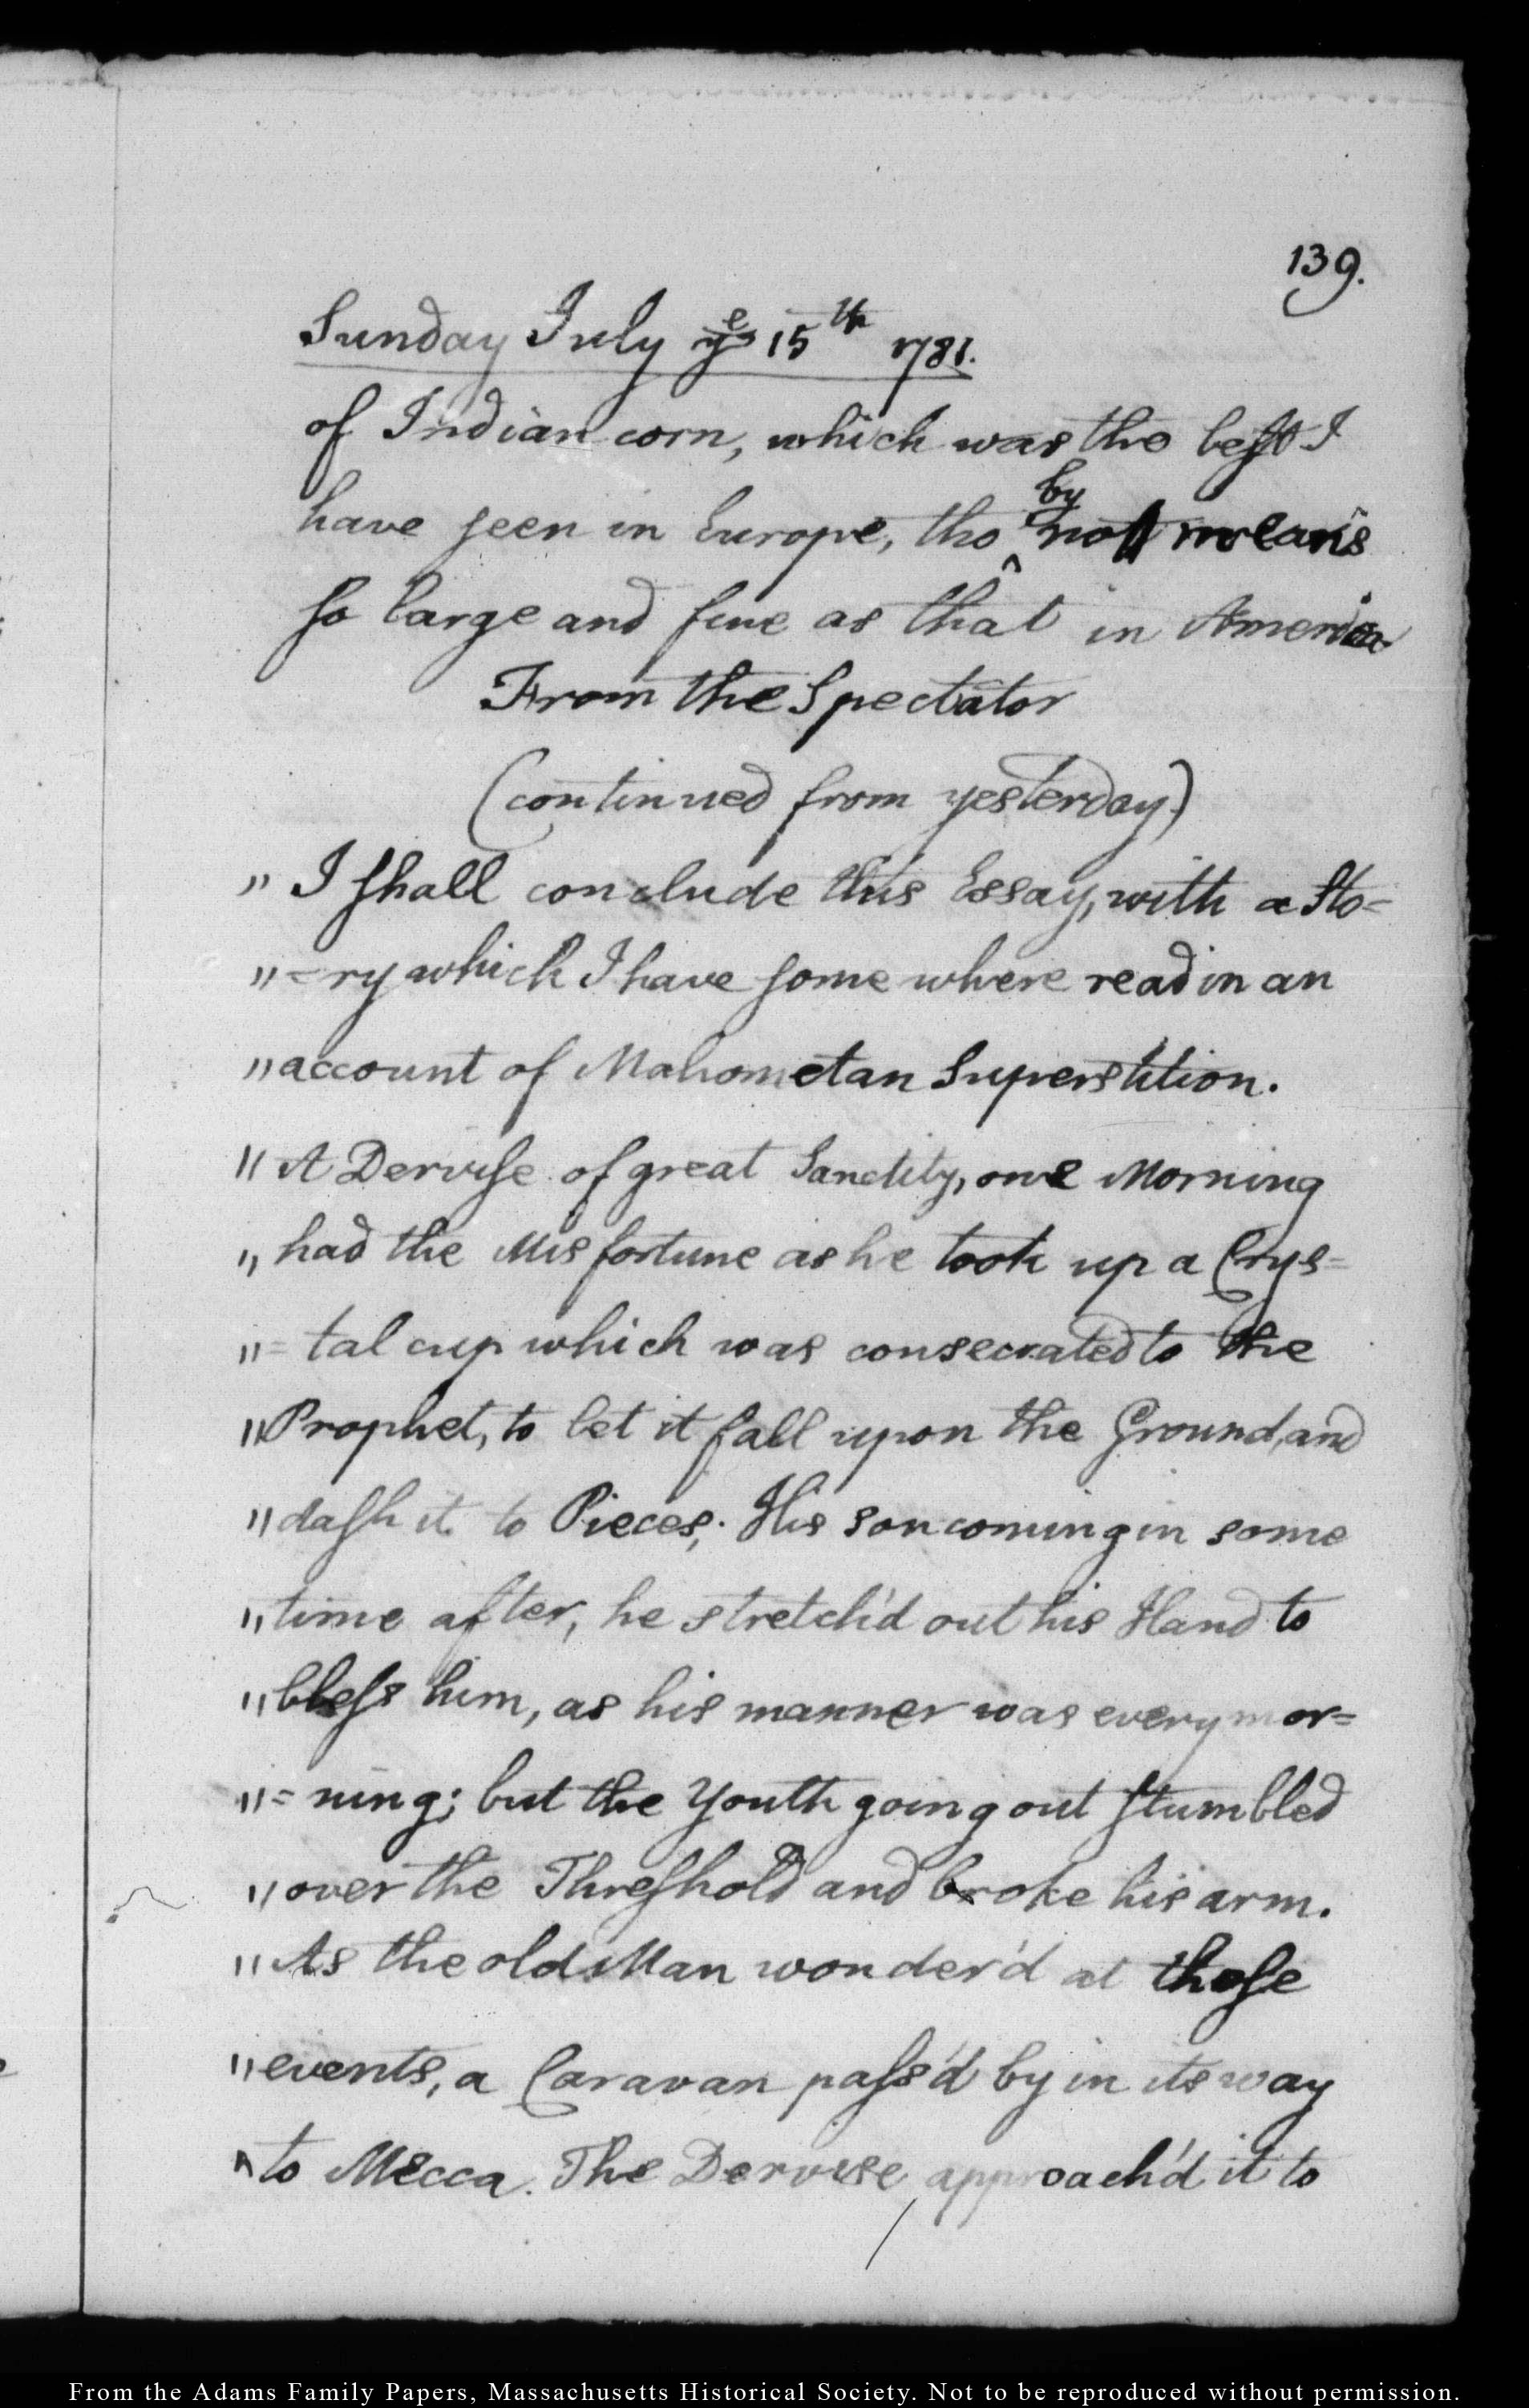 139.
Sunday July ye 15th 1781.
of Indian corn, which was the best I
have seen in Europe, tho by no means
so large and fine as that in America
From the Spectator
(continued from yesterday)
" I shall conclude this Essay, with a Sto=
" =ry which I have some where read in an
" account of Mahometan Superstition.
" A Dervise of great Sanctity, one Morning
" had the Misfortune as he took up a Crys=
" =tal cup which was consecrated to the
" Prophet, to let it fall upon the Ground, and
" dash it to Pieces; His son coming in some
" time after, he stretch'd out his Hand to
" bless him, as his manner was every mor=
" =ning; but the Youth going out stumbled
" over the Threshold and broke his arm.
" As the old Man wonder'd at these
" events, a Caravan pass'd by in its way
" to Mecca. The Dervise approach'd it to
From the Adams Family Papers, Massachusetts Historical Society. Not to be reproduced without permission.